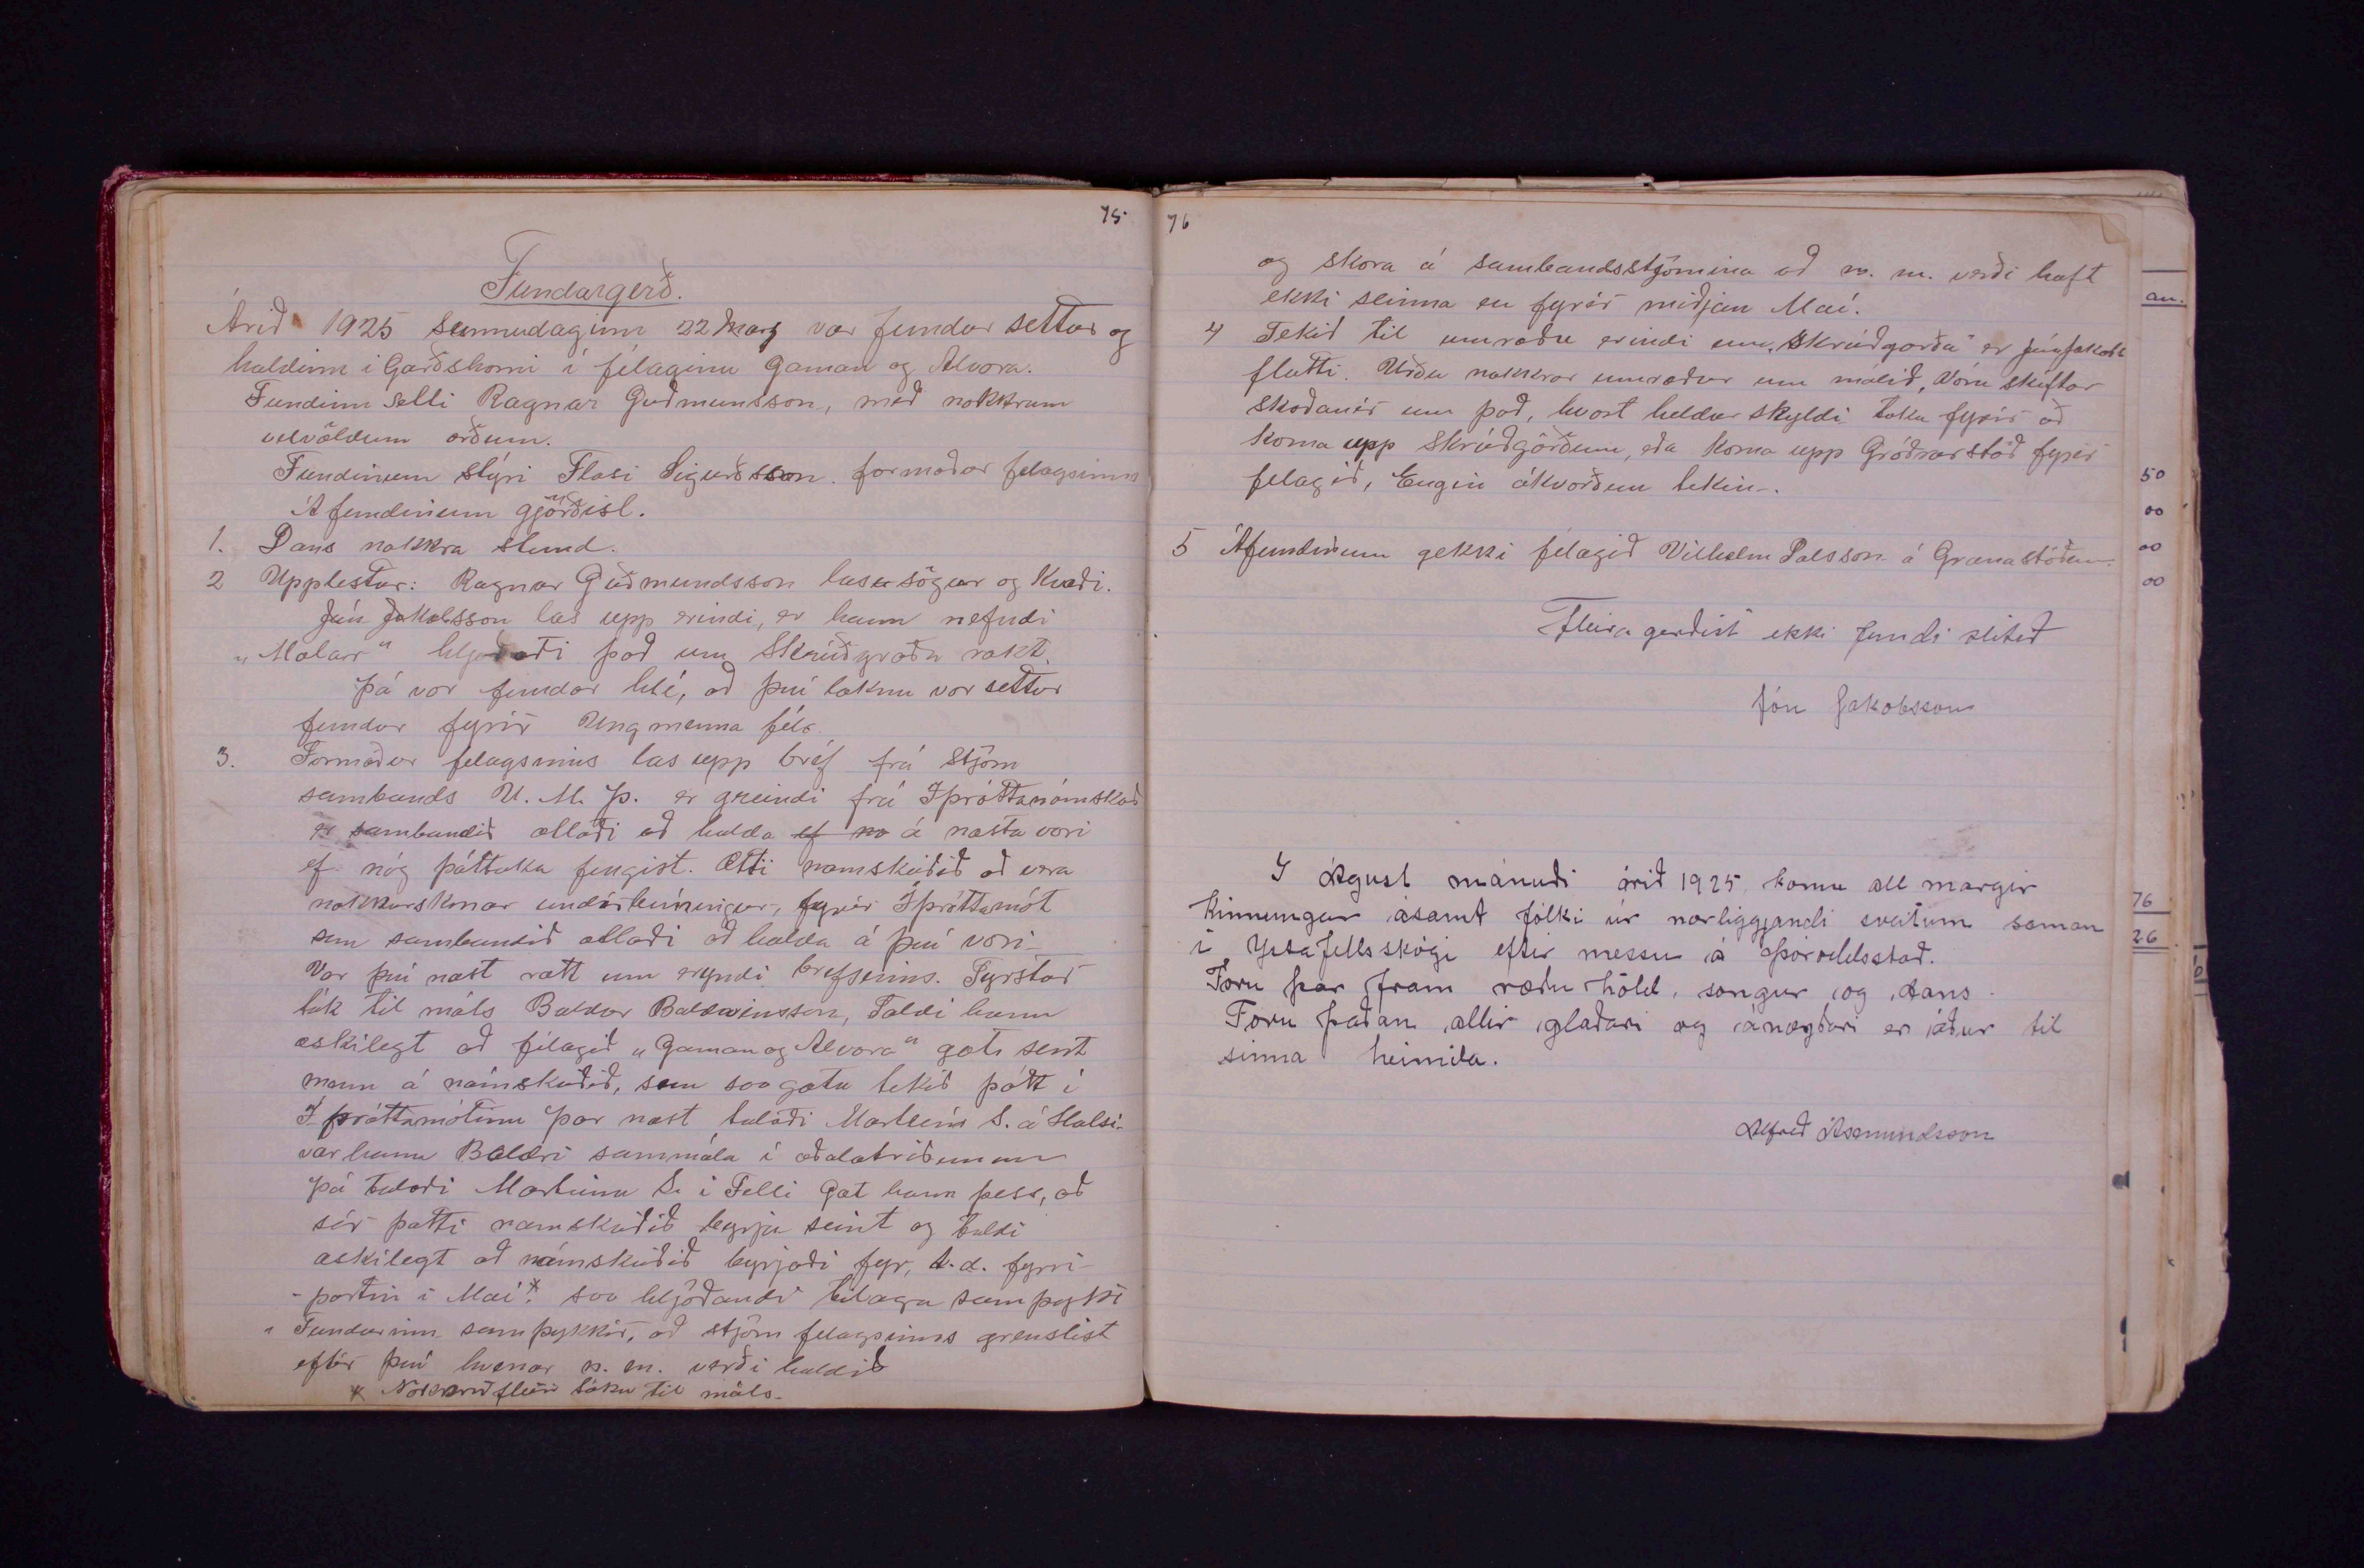 75
Fundargerð.
Árið 1925 sunnudaginn 22 Mars var fundur settur og
haldinn i Garðshorni í félaginu Gaman og Alvara.
Fundinn setti Ragnar Guðmunsson, með nokkrum
velvöldum orðum.
Fundinum stýri Flosi Sigurðsson. formaður felagsinns
Á fundinum gjörðist.
1. Dans nokkra stund.
2 Upplestur: Ragnar Guðmundsson las sögur og Kvæði.
Jón Jakobsson las upp erindi, er hann nefndi
„Molar" hljóðaði það um Skrúðgarða rækt.
Þá var fundar hlé, að því loknu var settur
fundur fyrir Ungmenna fél.
3. Formaður felagsinns las upp bréf frá stjórn
sambands U. M. Þ. er greindi frá Iþróttanámskeið
er sambandið ællaði að halda ef no á næsta vori
ef nóg þátttaka fengist. Ætti namskeiðið að vera
nokkurskonar undirbúningur, fyrir Íþróttamót
sem sambandið ætlaði að halda á því vori-
Var því næst rætt um eryndi brefsinns. Fyrstur
tók til máls Baldur Baldvinsson, Taldi hann
æskilegt að félagið „Gaman og Alvara" gæti sent
mann á námskeiðið, sem svo gætu tekið þátt í
Iþróttamótinu Þar næst talaði Marteinn S. á Halsi-
var hann Baldri sammála í aðalatriðunum
þá talaði Marteinn S. í Felli Gat hann þess, að
sér þætti namskeiðið byrja seint og taldi
æskilegt að námskeiðið byrjaði fyr, t.d. fyrri-
-partin i Maí.* svo hljóðandi tilaga samþykt
„ Fundurinn samþykkir, að stjórn felagsinns grenslist
eftir því hvenær n. m. verði haldið
* Nokkrir fleiri tóku til máls-
76
og skora á sambandsstjórnina að n. m. verði haft
ekki seinna en fyrir miðjan Maí.
4 Tekið til umræðu erindi um „Skrúðgarða" er Jón Jakobs
flutti. Urðu nokkrar umræður um málið, Vóru skiftar
skoðanir um það, hvort heldur skyldi taka fyrir að
koma upp Skrúðgörðum, eða koma upp Gróðrarstöð fyrir
felagið, Engin ákvörðun tekin-.
5 Á fundinum gekk í félagið Vilhelm Palsson á Granastöðum.
Fleira gerðist ekki fundi slitið
Jón Jakobsson
I Águst mánuði árið 1925 komu all margir
Kinnungar ásamt fólki úr nærliggjandi sveitum saman
í Ystafellsskógi eftir messu á Þóroddsstað.
Foru þar fram ræðu höld, söngur og dans.
Foru þaðan allir glaðari og ánægðari er áður til
sinna heimila.
Alfreð Ásmundsson
an.
50
00
00
00
76
26